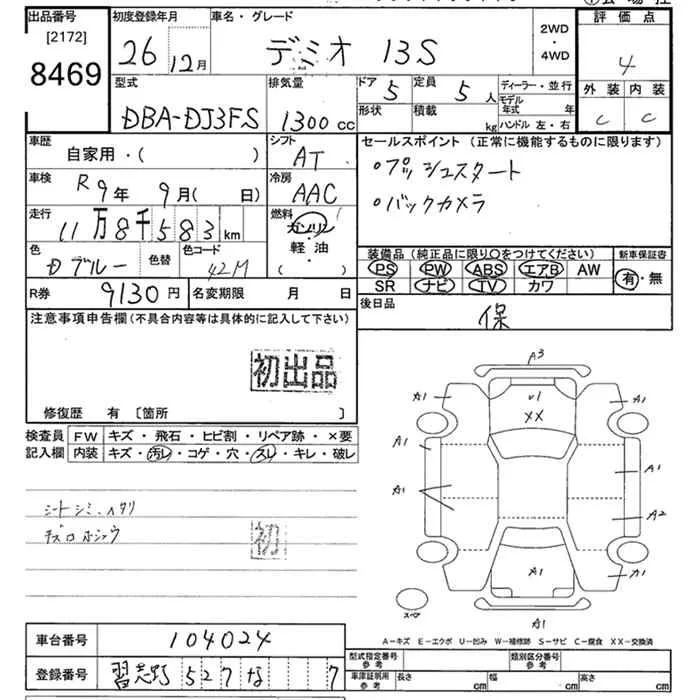 出品番号
[2172]
8469
初度登録年月
26年 12月
車名・グレード
デミオ 13S
2WD
・
4WD
評価点
4
外装 内装
C C
型式
DBA-DJ3FS
排気量
1300cc
ドア 5
定員 5人
形状
積載 kg
ディーラー・並行
モデル年式 年
ハンドル 左・右
車歴
自家用・( )
シフト
AT
車検
R9年 9月( 日)
冷房
AAC
走行
11万8千583km
燃料
ガソリン
軽・油
( )
色
Dブルー
色替
色コード
42M
R券 9130円
名変期限 月 日
セールスポイント (正常に機能するものに限ります)
○プッシュスタート
○バックカメラ
装備品(純正品に限り○をつけてください)
PS PW ABS エアB AW
SR ナビ TV カワ
新車保証書
有・無
後日品
保
注意事項申告欄(不具合内容等は具体的に記入して下さい)
初出品
修復歴 有 〔箇所 〕
検査員記入欄
FW キズ・飛石・ヒビ割・リペア跡・×要
内装 キズ・汚レ・コゲ・穴・スレ・キレ・破レ
シートシミ.ヘタリ
初
A3
A1
XX
A1
A1
A1
A1
A1
A2
A1
A1
A1
スペア
A-キズ E-エクボ U-凹み W-補修跡 S-サビ C-腐食 XX-交換済
車台番号 104024
登録番号 習志野 527 な 7
型式指定番号 参考
類別区分番号 参考
車庫証明用 参考 長さ cm 幅 cm 高さ cm